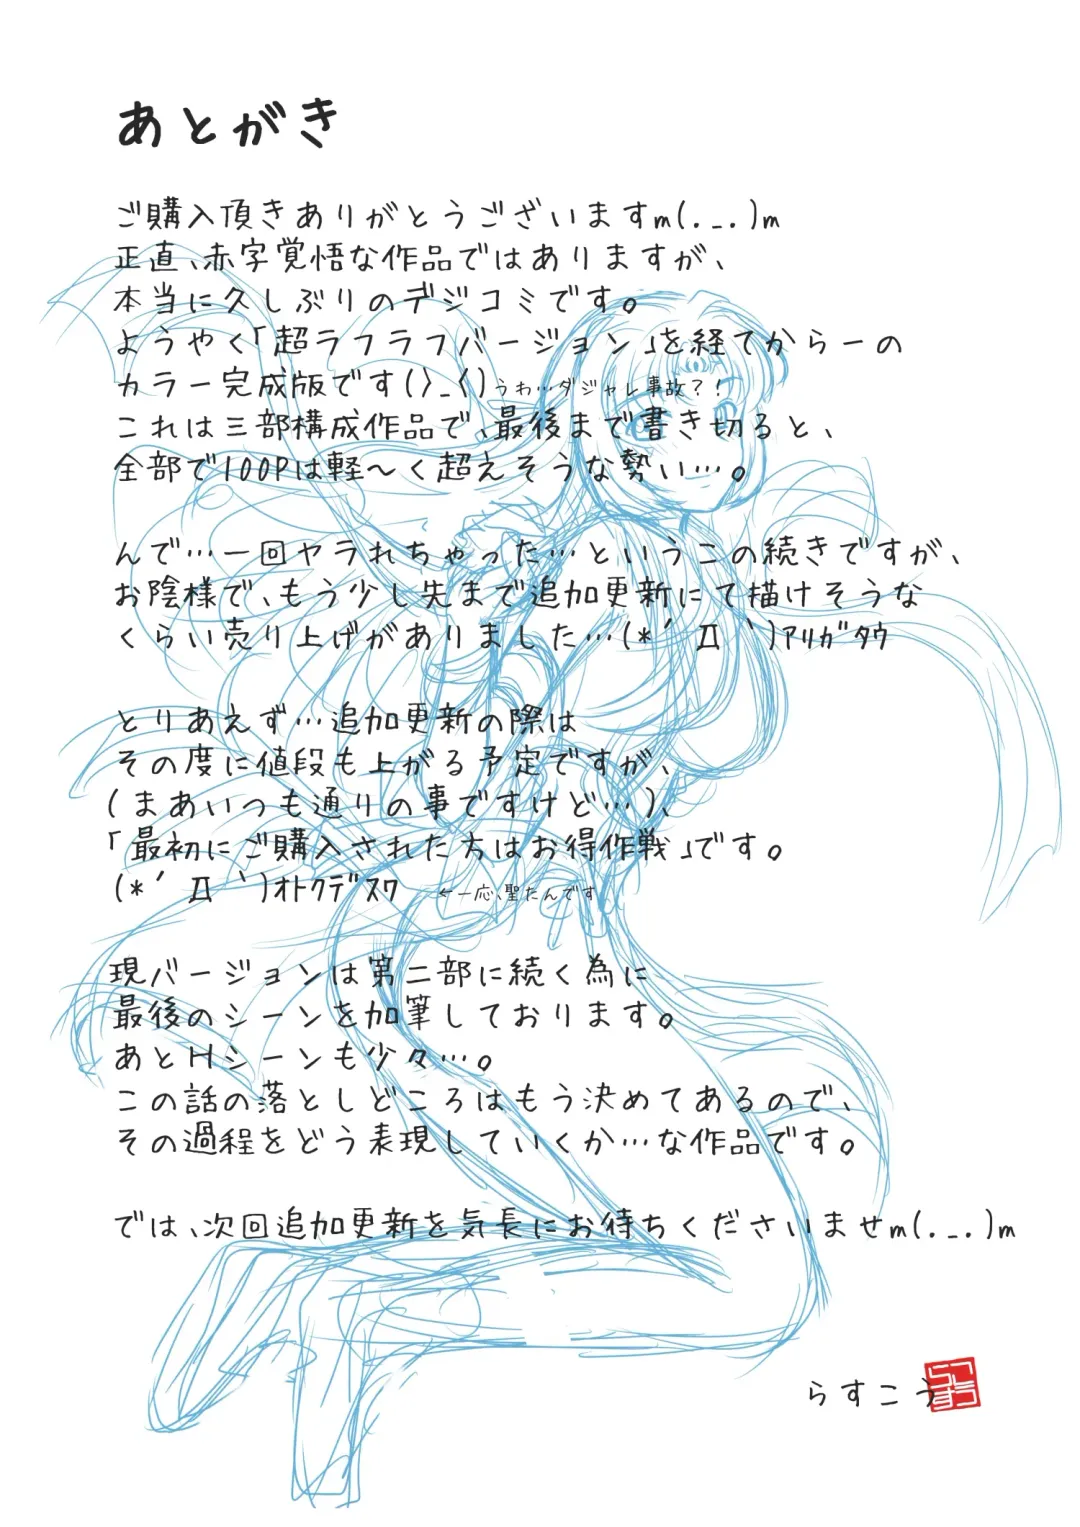 あとがき
ご購入頂きありがとうございますm(._.)m
正直、赤字覚悟な作品ではありますが、
本当に久しぶりのデジコミです。
ようやく「超ラフラフバージョン」を経てからーの
カラー完成版です(〉_〈)うわ…ダジャレ事故?!
これは三部構成作品で、最後まで書き切ると、
全部で100Pは軽〜く超えそうな勢い…。
んで…一回ヤラれちゃった…というこの続きですが、
お陰様で、もう少し先まで追加更新にて描けそうな
くらい売り上げがありました…(*´Д｀)ｱﾘｶﾞﾀｳ
とりあえず…追加更新の際は
その度に値段も上がる予定ですが、
(まあいつも通りの事ですけど…)、
「最初にご購入された方はお得作戦」です。
(*´Д｀)ｵﾄｸﾃﾞｽﾜ ←一応、聖たんです
現バージョンは第二部に続く為に
最後のシーンを加筆しております。
あとHシーンも少々…。
この話の落としどころはもう決めてあるので、
その過程をどう表現していくか…な作品です。
では、次回追加更新を気長にお待ちくださいませm(._.)m
らすこう